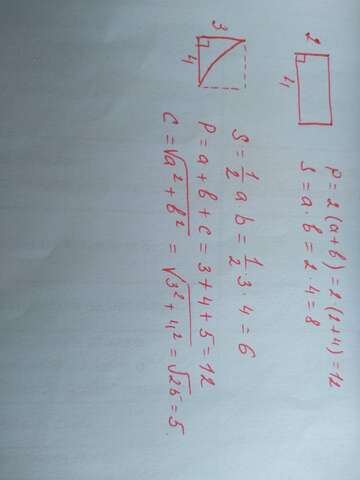 2
4
P = 2(a+b) = 2(2+4) = 12
S = a·b = 2·4 = 8
3
4
S = 1/2 a b = 1/2 3·4 = 6
P = a + b + c = 3+4+5 = 12
C = √a²+b² = √3²+4² = √25 = 5